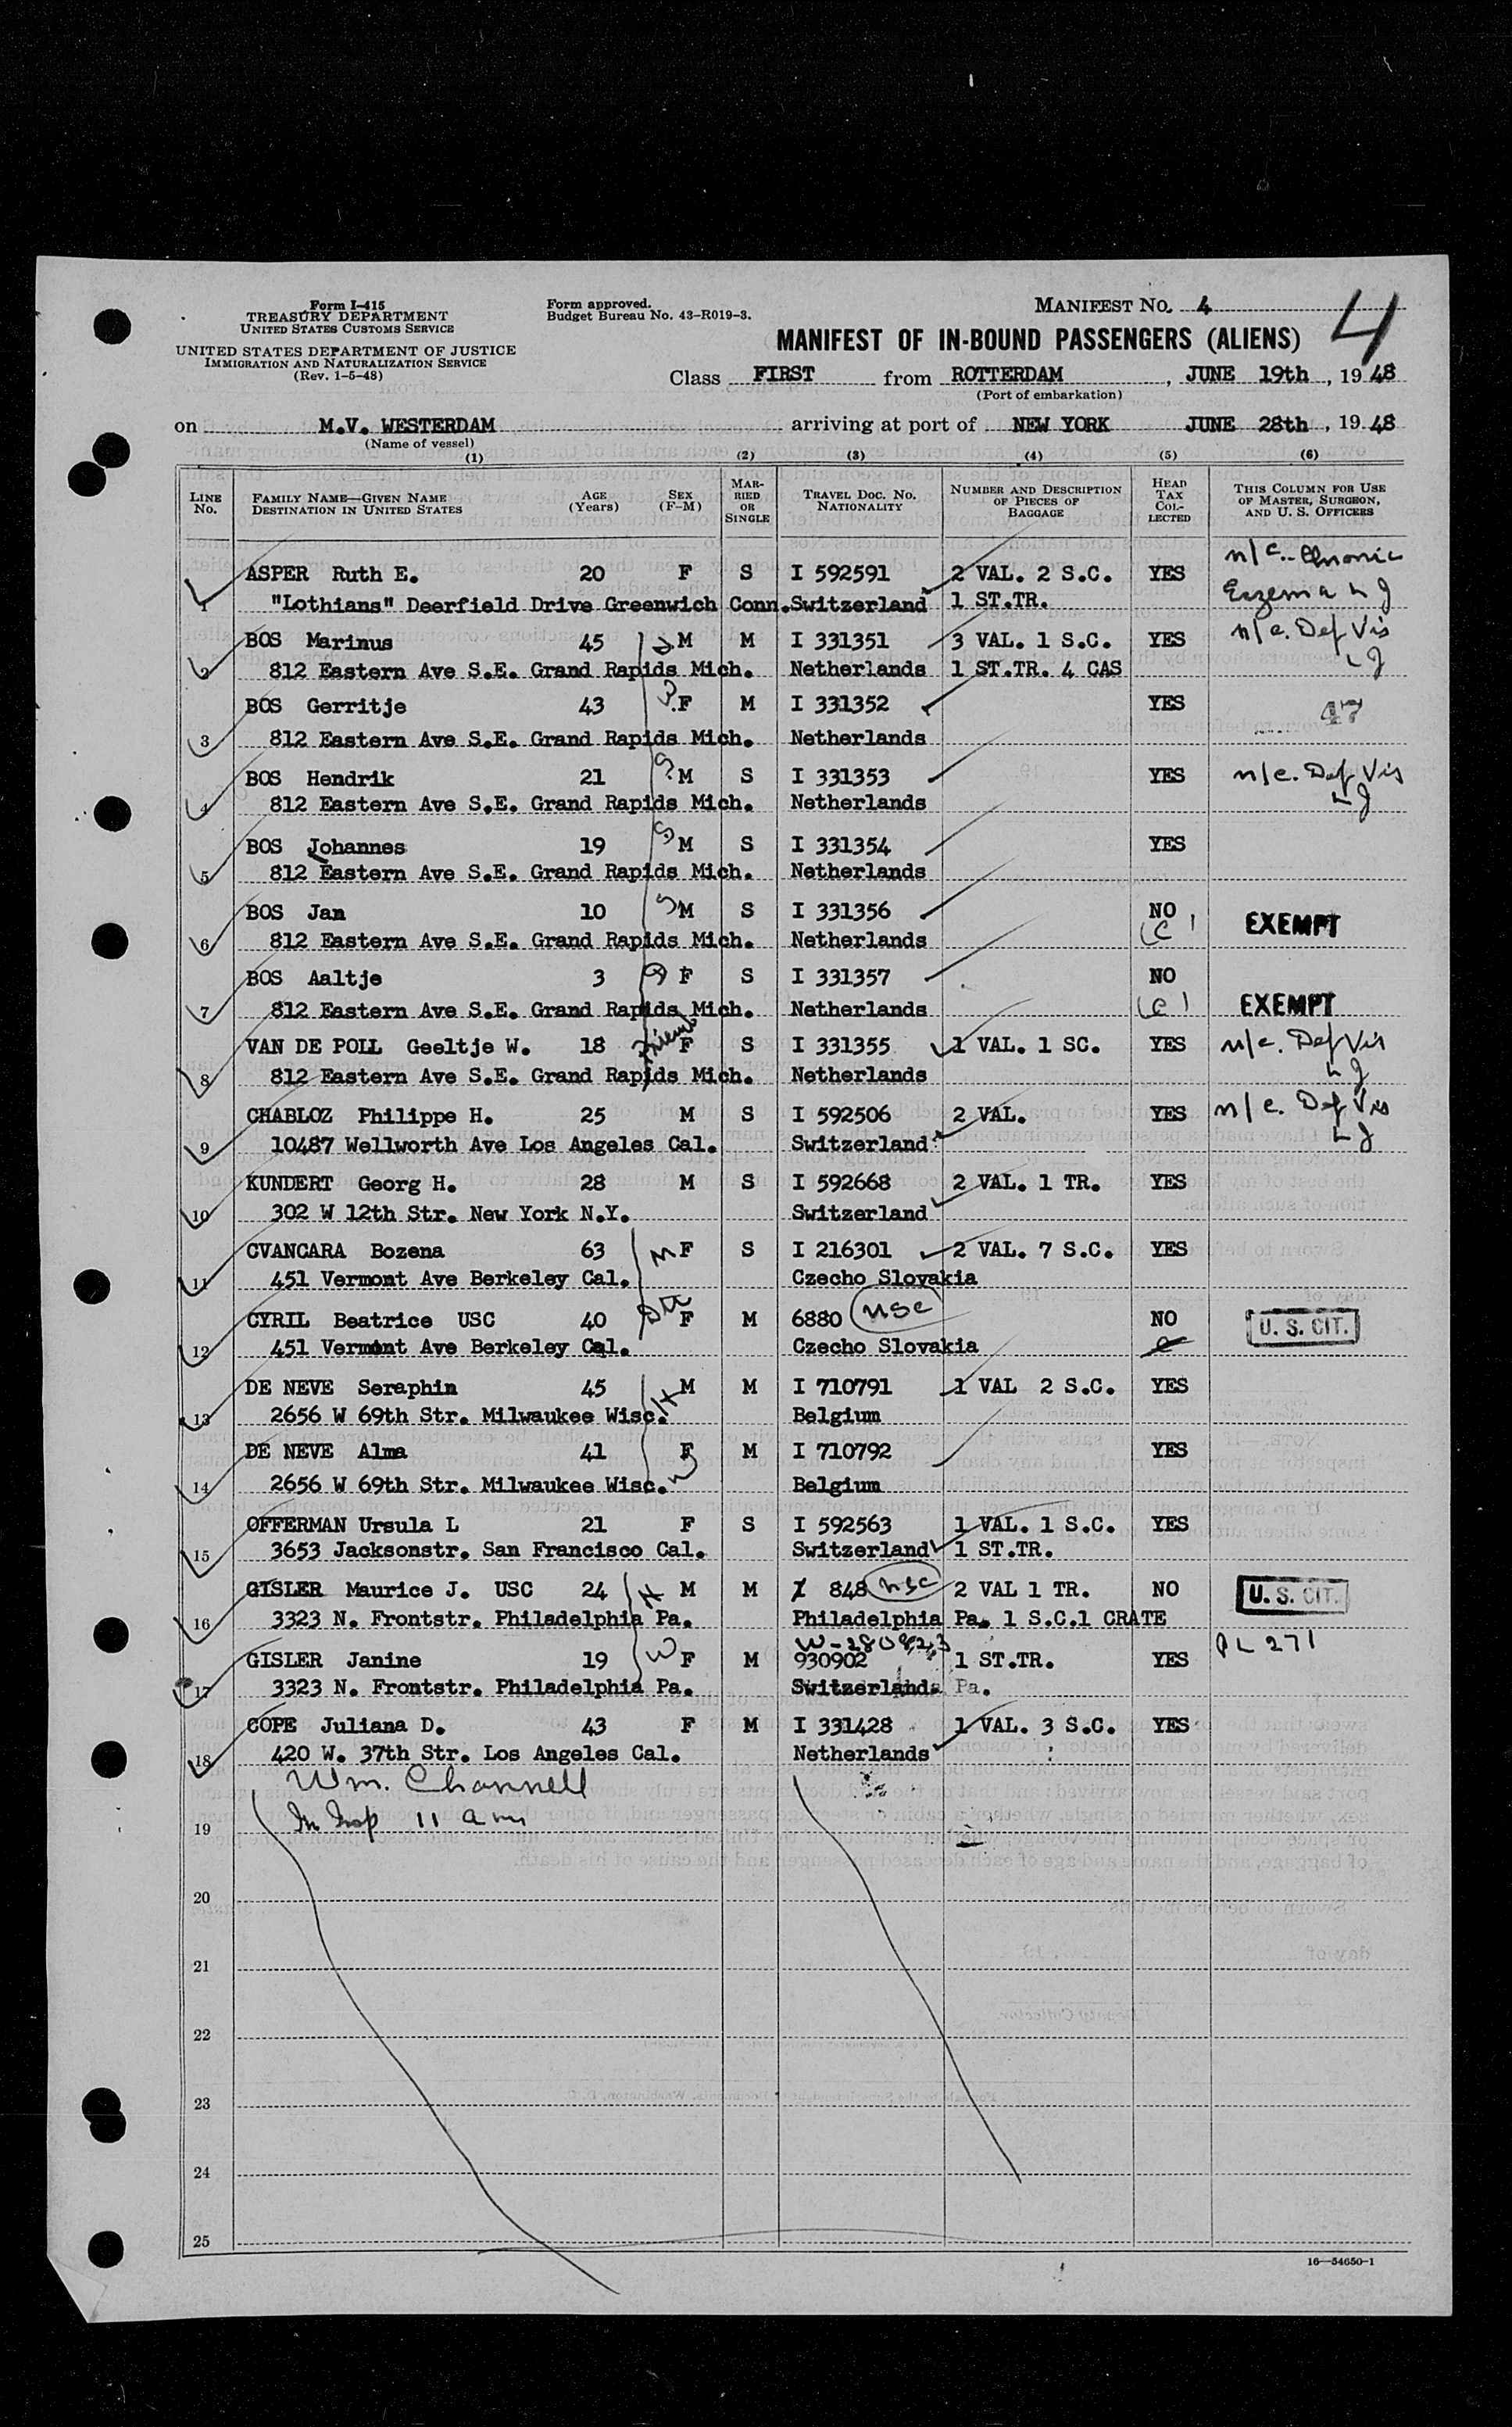 Form I-415
TREASURY DEPARTMENT
UNITED STATES CUSTOMS SERVICE
UNITED STATES DEPARTMENT OF JUSTICE
IMMIGRATION AND NATURALIZATION SERVICE
(Rev. 1-5-48)
Form approved.
Budget Bureau No. 43-R019-3.
MANIFEST NO. 4
4
MANIFEST OF IN-BOUND PASSENGERS (ALIENS)
Class FIRST from ROTTERDAM, JUNE 19th, 1948
(Port of embarkation)
on M.V. WESTERDAM arriving at port of NEW YORK JUNE 28th, 1948
(Name of vessel)
(1) (2) (3) (4) (5) (6)
LINE NO. FAMILY NAME—GIVEN NAME DESTINATION IN UNITED STATES AGE (Years) SEX (F-M) MARRIED OR SINGLE TRAVEL DOC. NO. NATIONALITY NUMBER AND DESCRIPTION OF PIECES OF BAGGAGE HEAD TAX COLLECTED THIS COLUMN FOR USE OF MASTER, SURGEON, AND U. S. OFFICERS
ASPER Ruth E. 20 F S I 592591 2 VAL. 2 S.C. YES n/c. Chronic
1 "Lothians" Deerfield Drive Greenwich Conn. Switzerland 1 ST.TR. Eczema L J
BOS Marinus 45 H M M I 331351 3 VAL. 1 S.C. YES n/c. Def Vis
2 812 Eastern Ave S.E. Grand Rapids Mich. Netherlands 1 ST.TR. 4 CAS L J
BOS Gerritje 43 W F M I 331352 YES 47
3 812 Eastern Ave S.E. Grand Rapids Mich. Netherlands
BOS Hendrik 21 S M S I 331353 YES n/c. Def Vis
4 812 Eastern Ave S.E. Grand Rapids Mich. Netherlands L J
BOS Johannes 19 S M S I 331354 YES
5 812 Eastern Ave S.E. Grand Rapids Mich. Netherlands
BOS Jan 10 S M S I 331356 NO EXEMPT
6 812 Eastern Ave S.E. Grand Rapids Mich. Netherlands
BOS Aaltje 3 D F S I 331357 NO
7 812 Eastern Ave S.E. Grand Rapids Mich. Netherlands EXEMPT
VAN DE POLL Geeltje W. 18 Friend F S I 331355 1 VAL. 1 SC. YES n/c. Def Vis
8 812 Eastern Ave S.E. Grand Rapids Mich. Netherlands L J
CHABLOZ Philippe H. 25 M S I 592506 2 VAL. YES n/c. Def Vis
9 10487 Wellworth Ave Los Angeles Cal. Switzerland L J
KUNDERT Georg H. 28 M S I 592668 2 VAL. 1 TR. YES
10 302 W 12th Str. New York N.Y. Switzerland
CVANCARA Bozena 63 M F S I 216301 2 VAL. 7 S.C. YES
11 451 Vermont Ave Berkeley Cal. Czecho Slovakia
CYRIL Beatrice USC 40 F M 6880 USC NO U. S. CIT.
12 451 Vermont Ave Berkeley Cal. Czecho Slovakia
DE NEVE Seraphin 45 H M M I 710791 1 VAL 2 S.C. YES
13 2656 W 69th Str. Milwaukee Wisc. Belgium
DE NEVE Alma 41 W F M I 710792 YES
14 2656 W 69th Str. Milwaukee Wisc. Belgium
OFFERMAN Ursula L 21 F S I 592563 1 VAL. 1 S.C. YES
15 3653 Jacksonstr. San Francisco Cal. Switzerland 1 ST.TR.
GISLER Maurice J. USC 24 H M M I 848 USC 2 VAL 1 TR. NO U. S. CIT.
16 3323 N. Frontstr. Philadelphia Pa. Philadelphia Pa. 1 S.C.1 CRATE
GISLER Janine 19 W F M 930902 1 ST.TR. YES PL 271
17 3323 N. Frontstr. Philadelphia Pa. Switzerland. Pa.
COPE Juliana D. 43 F M I 331428 1 VAL. 3 S.C. YES
18 420 W. 37th Str. Los Angeles Cal. Netherlands
Wm. Channell
19 Im Insp 11 am
20
21
22
23
24
25
16—54650-1